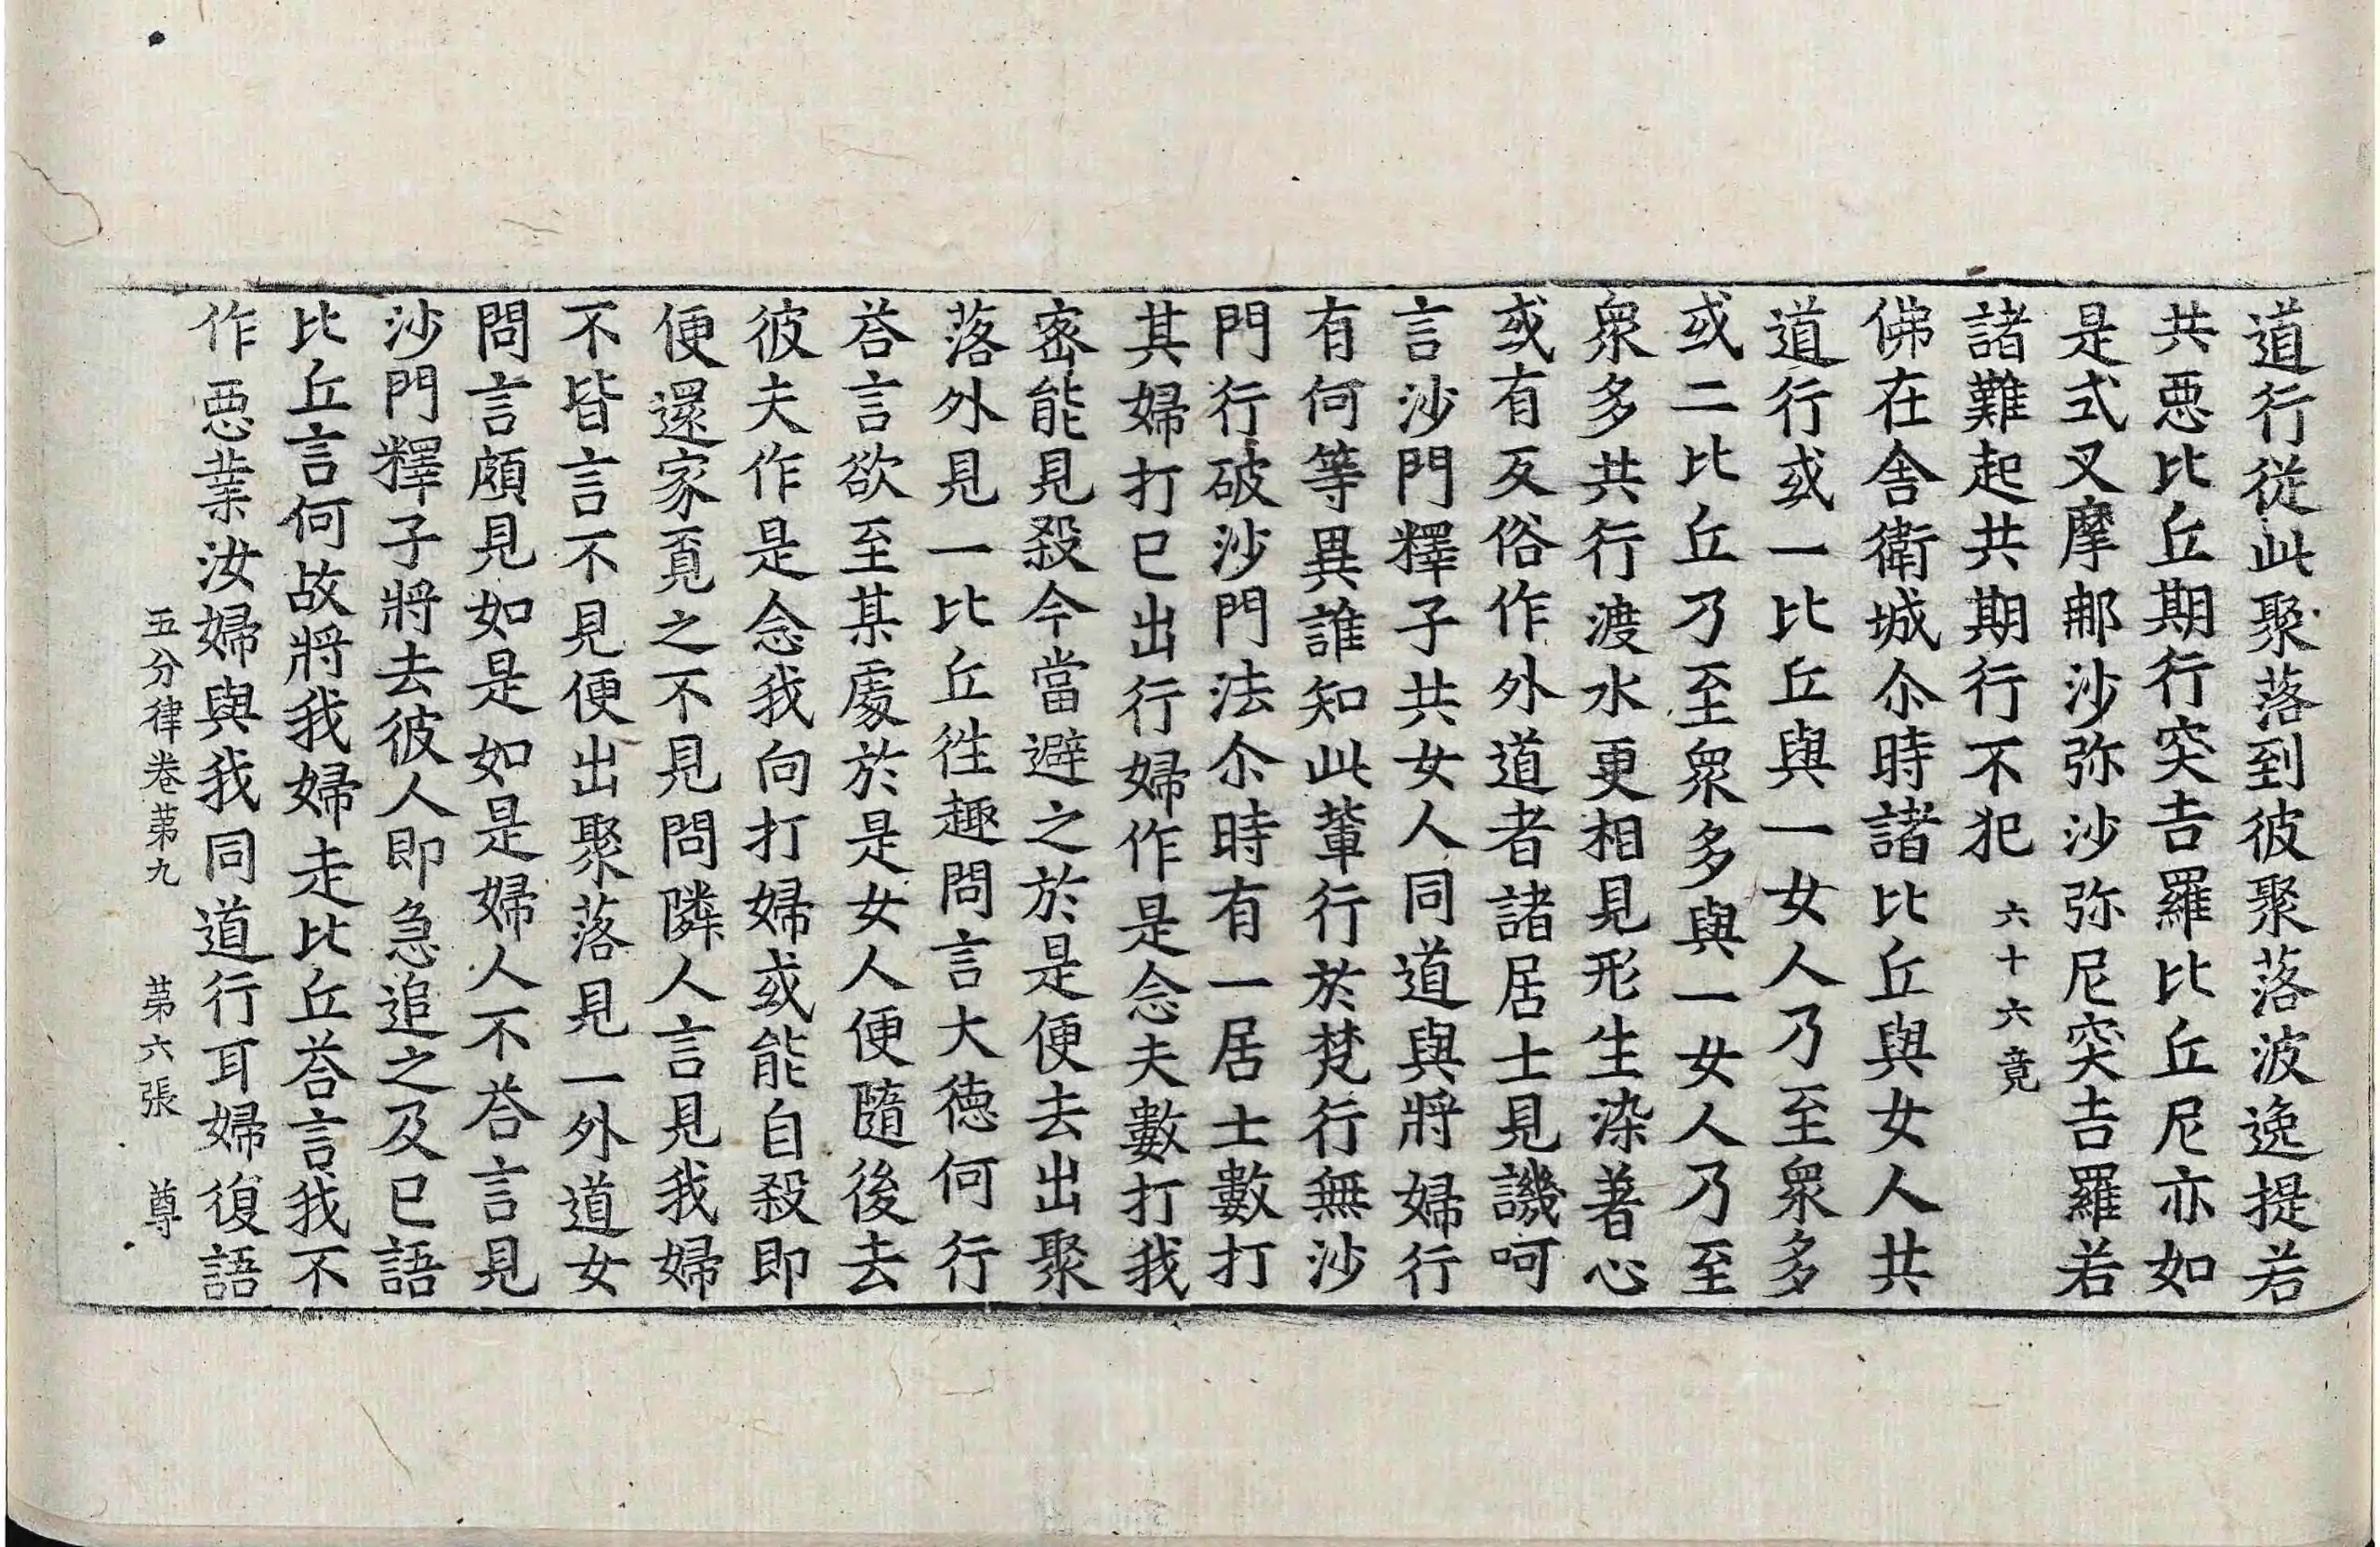 道行從此聚落到彼聚落波逸提若
共惡比丘期行突吉羅比丘尼亦如
是式叉摩那沙弥沙弥尼突吉羅若
諸難起共期行不犯 六十六竟
佛在舎衛城尒時諸比丘與女人共
道行或一比丘與一女人乃至衆多
或二比丘乃至衆多與一女人乃至
衆多共行渡水更相見形生染著心
或有反俗作外道者諸居士見譏呵
言沙門釋子共女人同道與將婦行
有何等異誰知此軰行於梵行無沙
門行破沙門法尒時有一居士數打
其婦打已出行婦作是念夫數打我
宻能見殺今當避之於是便去出聚
落外見一比丘徃趣問言大德何行
荅言欲至某處於是女人便隨後去
彼夫作是念我向打婦或能自殺即
便還家覔之不見問隣人言見我婦
不皆言不見便出聚落見一外道女
問言頗見如是如是婦人不荅言見
沙門釋子將去彼人即急追之及已語
比丘言何故將我婦走比丘荅言我不
作惡業汝婦與我同道行耳婦復語
五分律卷苐九 苐六張 尊